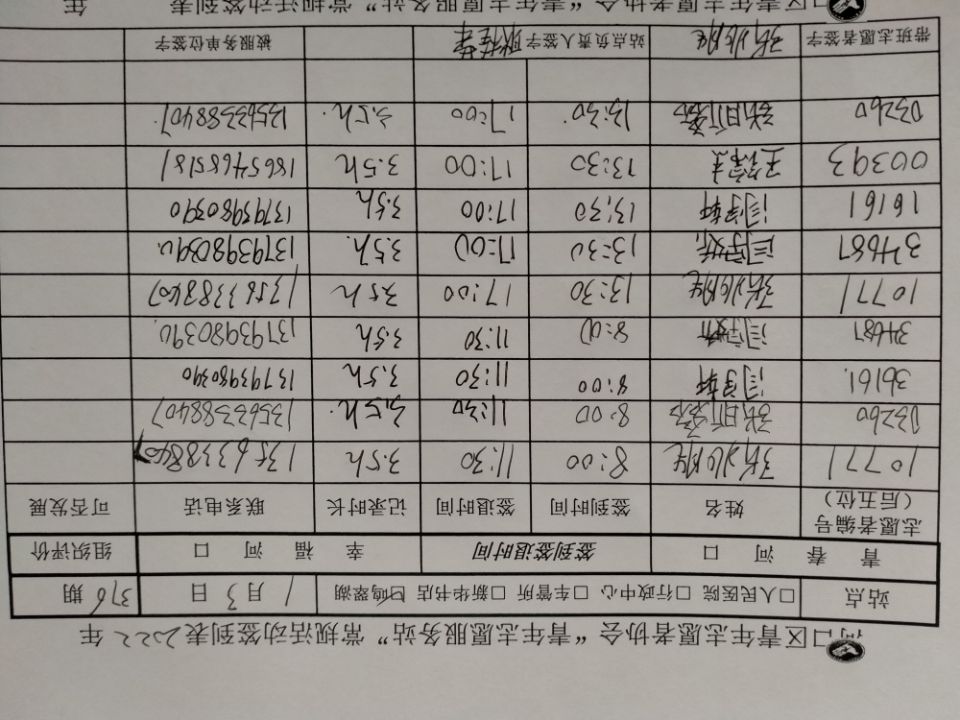 河口区青年志愿者协会“青年志愿服务站”常规活动签到表2022年
站点 □人民医院 □行政中心 □车管所 □新华书店 ☑鸣翠湖 1月3日 376期
青春河口 签到签退时间 幸福河口 组织评价
志愿者编号（后五位） 姓名 签到时间 签退时间 记录时长 联系电话 可否发展
10771 8:00 11:30 3.5h 13563388407
03260 8:00 11:30 3.5h. 13563388407
36161. 闫学轩 8:00 11:30 3.5h 13793980390
34687 8:00 11:30 3.5h 13793980390.
10771 13:30 17:00 3.5h 13563388407
34687 13:30 17:00 3.5h. 13793980390.
16161 闫学轩 13:30 17:00 3.5h 13793980390
00393 13:30 17:00 3.5h 18654685181
03260 13:30. 17:00 3.5h. 13563388407.
带班志愿者签字 站点负责人签字 被服务单位签字
河口区青年志愿者协会“青年志愿服务站”常规活动签到表 年